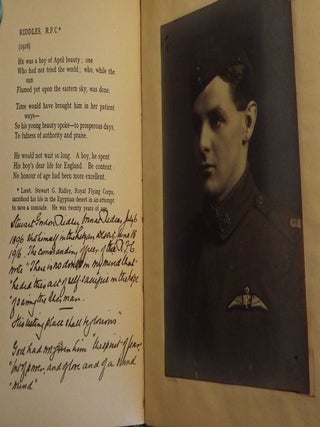 RIDDLES, R.F.C.*
(1916)
He was a boy of April beauty; one
Who had not tried the world; who, while the
sun
Flamed yet upon the eastern sky, was done.
Time would have brought him in her patient
ways—
So his young beauty spoke—to prosperous days,
To fulness of authority and praise.
He would not wait so long. A boy, he spent
His boy's dear life for England. Be content:
No honour of age had been more excellent.
* Lieut. Stewart G. Ridley, Royal Flying Corps,
sacrificed his life in the Egyptian desert in an attempt
to save a comrade. He was twenty years of age.
Stuart Gordon Ridley July
1896 himself in the Desert June 18
1916. The commanding officer of the R.F.C.
wrote "There is no doubt in my mind that
he did this act of self-sacrifice in the hope
of saving the other man.
His resting place shall be glorious"
God had not given him the spirit of fear,
but of power, and of love and of a sound
mind"